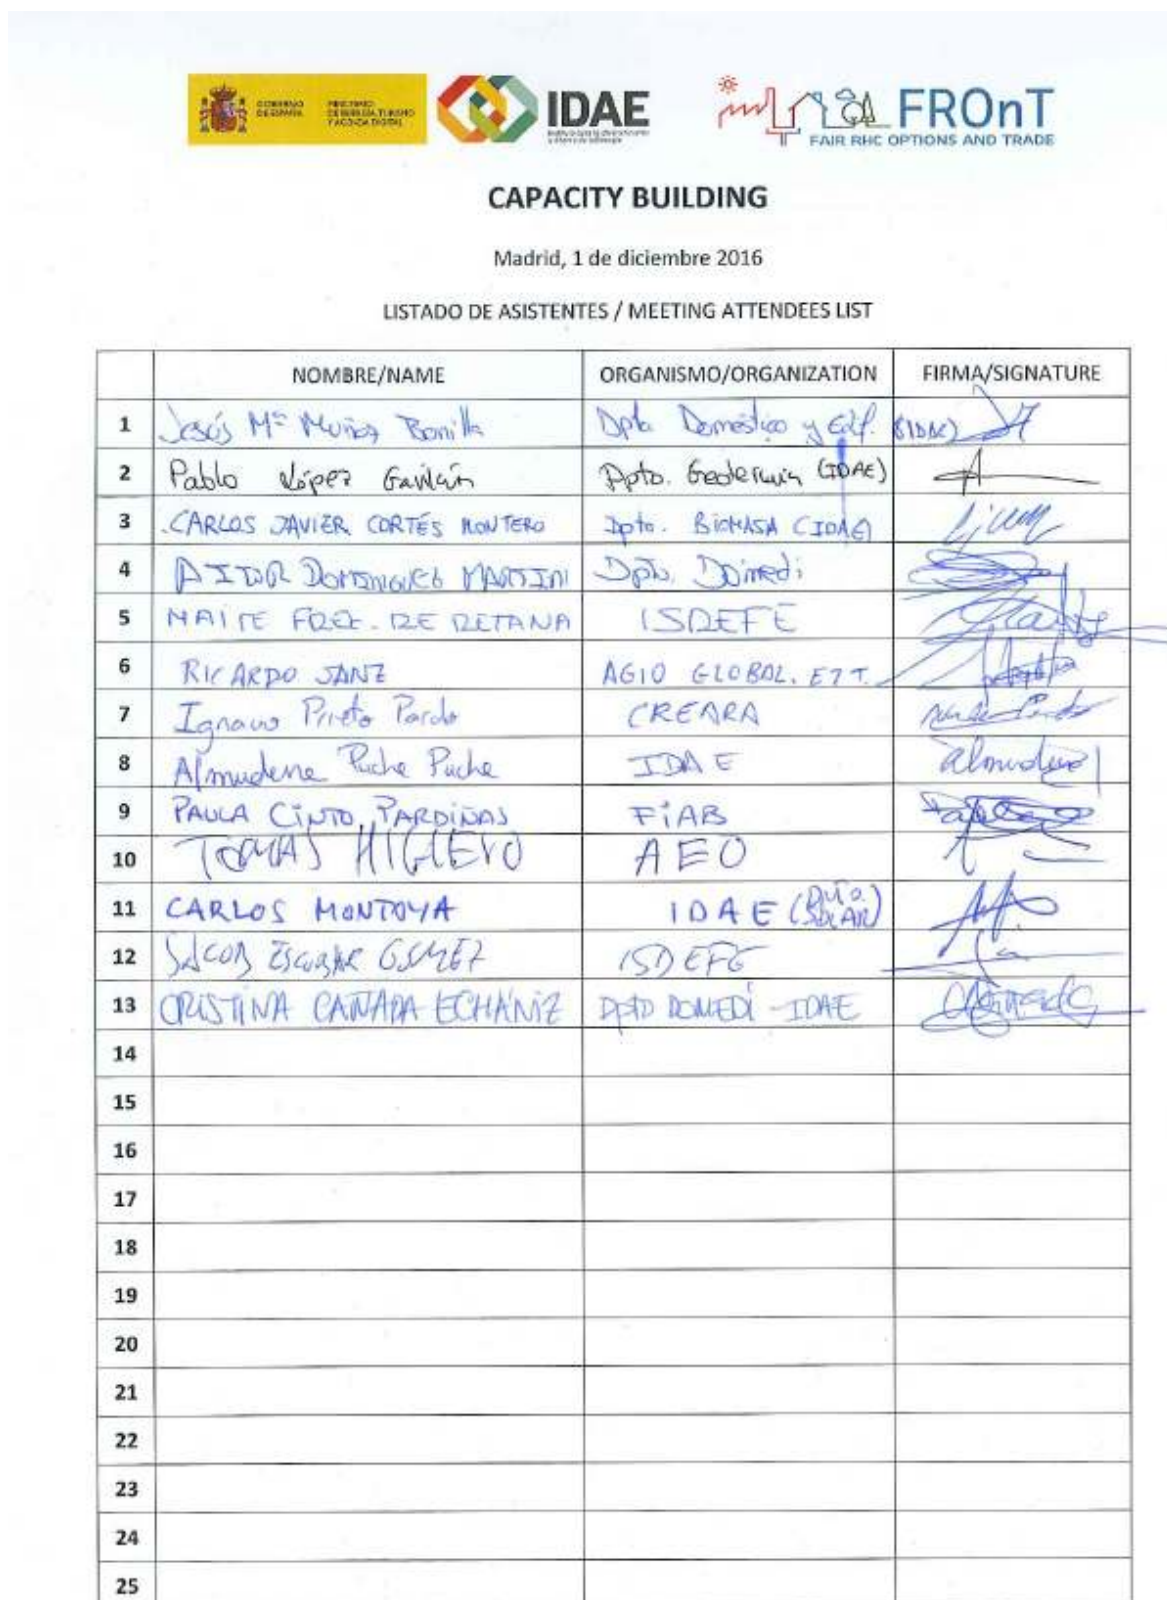 GOBIERNO DE ESPAÑA
MINISTERIO DE ENERGÍA, TURISMO Y AGENDA DIGITAL
IDAE
FROnT
FAIR RHC OPTIONS AND TRADE
CAPACITY BUILDING
Madrid, 1 de diciembre 2016
LISTADO DE ASISTENTES / MEETING ATTENDEES LIST
NOMBRE/NAME ORGANISMO/ORGANIZATION FIRMA/SIGNATURE
1 Jesús Mª Muñoz Bonilla Dpto Doméstico y Edif. (IDAE)
2 Pablo López Gavilán Dpto. Geotermia (IDAE)
3 CARLOS JAVIER CORTÉS MONTERO Dpto. BIOMASA (IDAE)
4 AITOR DOMINGUEZ MARTIN Dpto. Domedi
5 MAITE FDEZ. DE RETANA ISDEFE
6 RICARDO SANZ AGIO GLOBAL. ETT.
7 Ignacio Prieto Pardo CREARA
8 Almudena Puche Puche IDAE Almudena
9 PAULA CINTO PARDIÑAS FiAB
10 TOMAS AEO
11 CARLOS MONTOYA IDAE (Dpto. SOLAR)
12 JACOB ESCOBAR GOMEZ ISDEFE
13 CRISTINA CAÑADA ECHÁNIZ DPTO DOMEDI - IDAE
14
15
16
17
18
19
20
21
22
23
24
25